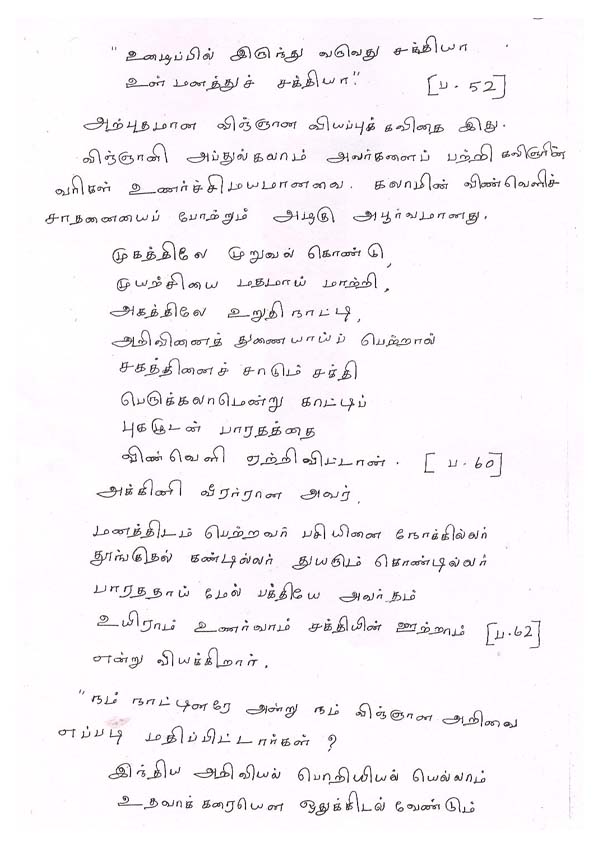 "உடைப்பில் இருந்து வருவது சக்தியா
உன் மனத்துச் சக்தியா?" [ப. 52]
அற்புதமான விஞ்ஞான வியப்புக் கவிதை இது.
விஞ்ஞானி அப்துல்கலாம் அவர்களைப் பற்றி கவிஞரின்
வரிகள் உணர்ச்சிமயமானவை. கலாமின் விண்வெளிச்
சாதனையைப் போற்றும் அடிகள் அபூர்வமானது.
முகத்திலே முறுவல் கொண்டு,
முயற்சியை மதமாய் மாற்றி,
அகத்திலே உறுதி நாட்டி,
அறிவினைத் துணையாய்ப் பெற்றால்
சகத்தினைச் சாடும் சக்தி
பெருக்கலாமென்று காட்டிப்
புகழுடன் பாரதத்தை
விண்வெளி ஏற்றிவிட்டான். [ப. 60]
அக்கினி வீரர்ரான அவர்,
மனத்திடம் பெற்றவர் பசியினை நோக்கில்லர்
தூங்குதல் கண்டில்லர் துயரும் கொண்டில்லர்
பாரததாய் மேல் பக்தியே அவர்தம்
உயிராம் உணர்வாம் சக்தியின் ஊற்றாம் [ப.62]
என்று வியக்கிறார்.
"நம் நாட்டினரே அன்று நம் விஞ்ஞான அறிவை
எப்படி மதிப்பிட்டார்கள் ?
இந்திய அறிவியல் பொறியியல் யெல்லாம்
உதவாக் கரையென ஒதுக்கிடல் வேண்டும்